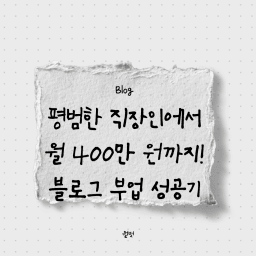 Blog
평범한 직장인에서
월 400만 원까지!
블로그 부업 성공기